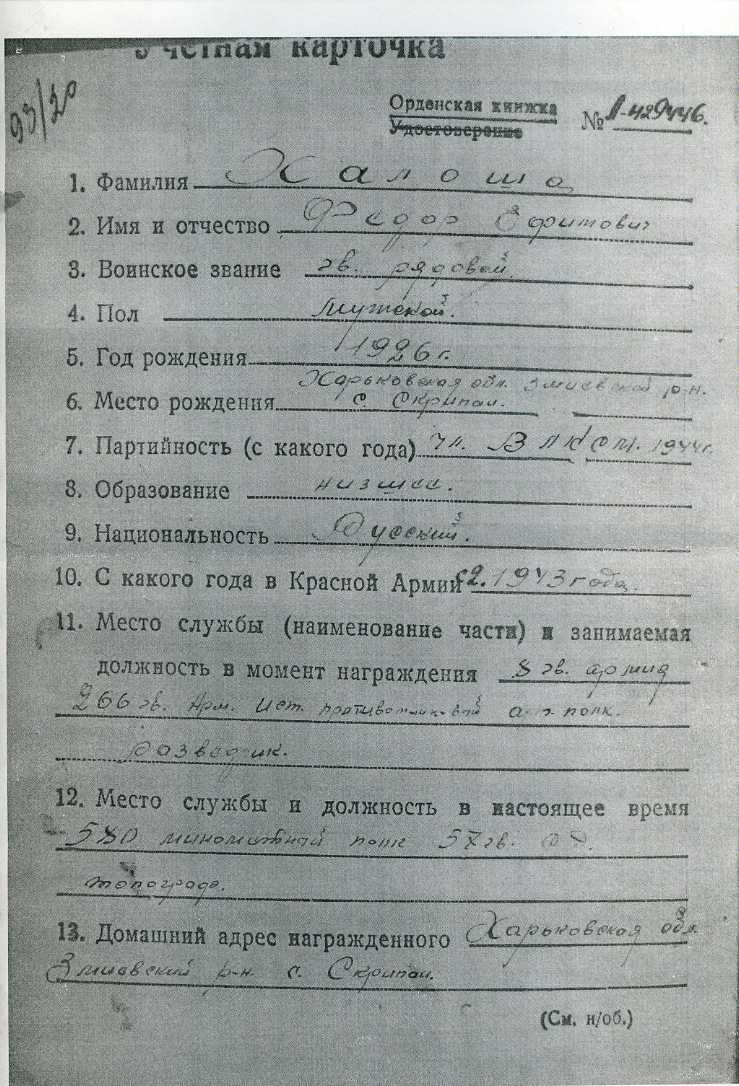 Учетная карточка
93/20
Орденская книжка
Удостоверение
№ А-429446.
1. Фамилия Халоша
2. Имя и отчество Федор Ефимович
3. Воинское звание гв. рядовой.
4. Пол Мужской.
5. Год рождения 1926 г.
Харьковская обл. Змиевской р-н.
6. Место рождения с. Скрипаи.
7. Партийность (с какого года) чл. ВЛКСМ. 1944г.
8. Образование низшее.
9. Национальность Русский.
10. С какого года в Красной Армии с 2.1943 года.
11. Место службы (наименование части) и занимаемая
должность в момент награждения 8 гв. армия
266 гв. Арм. Ист. противотанковой полк.
Разведчик.
12. Место службы и должность в настоящее время
580 минометной полк 57 гв.
топограф.
13. Домашний адрес награжденного Харьковская обл.
Змиевский р-н. с. Скрипаи.
(См. н/об.)